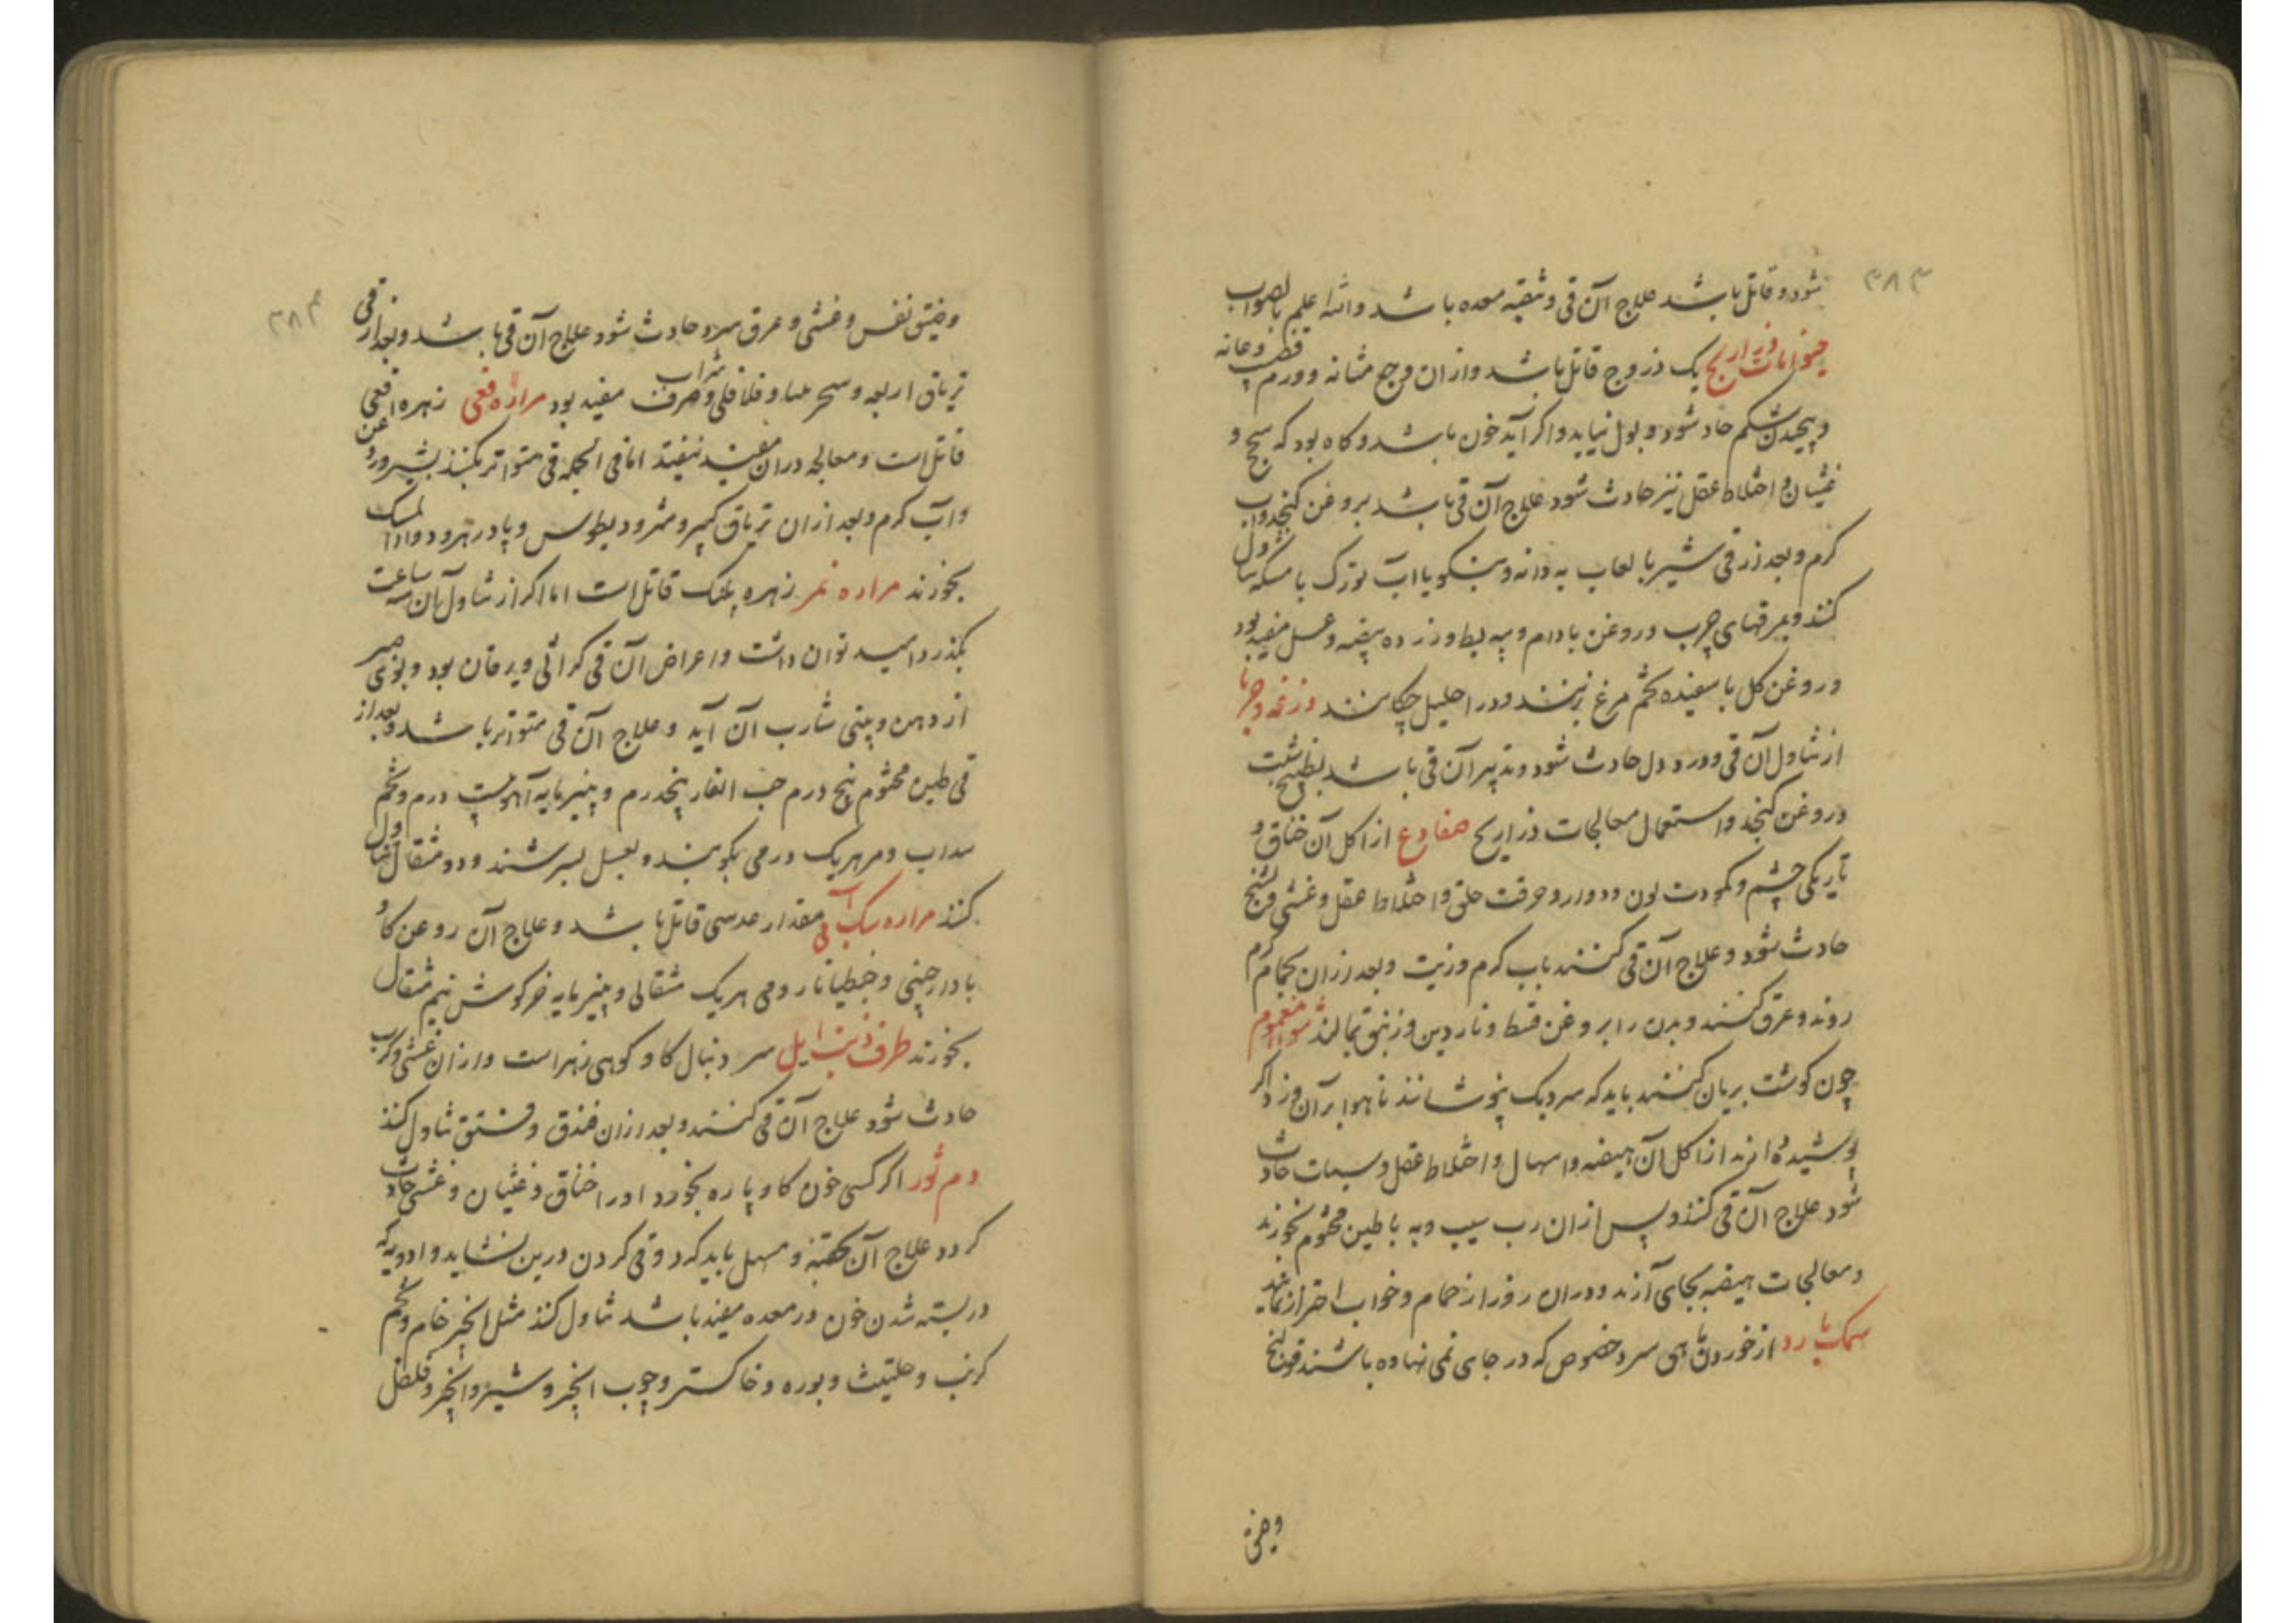 ۳۸۳
شود و قاتل باشد علاج آن قی و تنقیه معده باشد والله اعلم بالصواب
حیوانات ذراریح یک ذروح قاتل باشد و ازان وجع مثانه و ورم قضیب و عانه
و پیچیدن شکم حادث شود و بول نیاید و اکر آید خون باشد و کاه بود که سحج و
غثیان و اختلاط عقل نیز حادث شود علاج آن قی باشد بروغن کنجد و آب
کرم و بعد از قی شیر با لعاب به دانه و یا آب تورک با مسکه تناول
کنند و مرقهای چرب و روغن بادام و پیه بط و زرده بیضه و عسل مفید بود
و روغن کل با سفیده تخم مرغ بزنند و در احلیل چکانند وزغه و حربا
از تناول آن قی و درد دل حادث شود و تدبیر آن قی باشد بطبیخ شبت
و روغن کنجد و استعمال معالجات ذراریح ضفادع از اکل آن خناق و
تاریکی چشم و کمودت لون و دوار و حرقت حلق و اختلاط عقل و غشی و تشنج
حادث شود و علاج آن قی کنند بآب کرم و زیت و بعد ازان بحمام کرم
روند و عرق کنند و بدن را بروغن قسط و ناردین و زنبق بمالند شواء مغموم
چون کوشت بریان کنند باید که سر دیک نپوشانند تا هوا بر آن وزد اکر
پوشیده آرند از اکل آن هیضه و اسهال و اختلاط عقل و سبات حادث
شود علاج آن قی کنند و پس ازان رب سیب و به با طین مختوم بخورند
و معالجات هیضه بجای آرند و دران روز از حمام و خواب احتراز نمایند
سمک بارد از خوردن ماهی سرد خصوص که در جای نمی نهاده باشند قولنج
وضیق
۳۸۴
و ضیق نفس و غشی و عرق سرد حادث شود علاج آن قی باشد و بعد از قی
تریاق اربعه و سجزینیا و فلافلی و شراب صرف مفید بود مراره افعی زهره افعی
قاتل است و معالجه دران مفید نیفتد اما فی الجمله قی متواتر بکنند بشیر و روغن
و آب کرم و بعد ازان تریاق کبیر و مثرودیطوس و پادزهر و دواء المسک
بخورند مراره نمر زهره پلنک قاتل است اما اکر از تناول آن سه ساعت
بکذرد امید توان داشت و اعراض آن قی کراثی و یرقان بود و بوی صبر
از دهن و بینی شارب آن آید و علاج آن قی متواتر باشد و بعد از
قی طین مختوم پنج درم حب الغار پنجدرم و پنیر مایه آهو بیست درم و تخم
سداب و مر هر یک درمی بکوبند و بعسل بسرشند و دو مثقال تناول
کنند مراره سک آبی مقدار عدسی قاتل باشد و علاج آن روغن کاو
با دارچینی و جنطیانا رومی هر یک مثقالی و پنیر مایه خرکوش نیم مثقال
بخورند طرف ذنب ایل سر دنبال کاو کوهی زهر است و ازان غشی و کرب
حادث شود علاج آن قی کنند و بعد ازان فندق و فستق تناول کنند
دم ثور اکر کسی خون کاو پاره بخورد او را خناق و غثیان و غشی حادث
کردد علاج آن بحقنه و مسهل باید کرد و قی کردن درین نشاید و ادویه که
در بسته شدن خون در معده مفید باشد تناول کنند مثل انجیر خام و تخم
کرنب و حلتیت و بوره و خاکستر و چوب انجیر و شیر و انجیر و فلفل